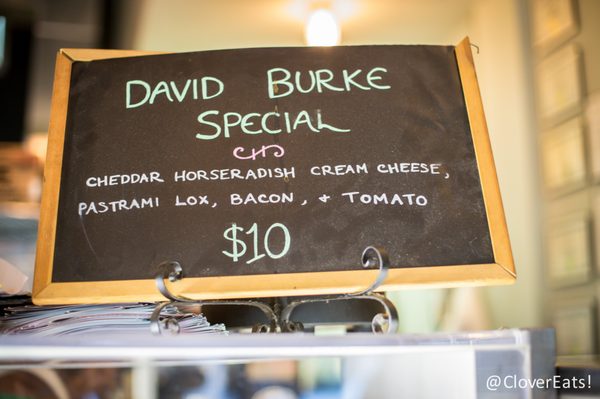 DAVID BURKE
SPECIAL
CHEDDAR HORSERADISH CREAM CHEESE,
PASTRAMI LOX, BACON, & TOMATO
$10
@CloverEats!